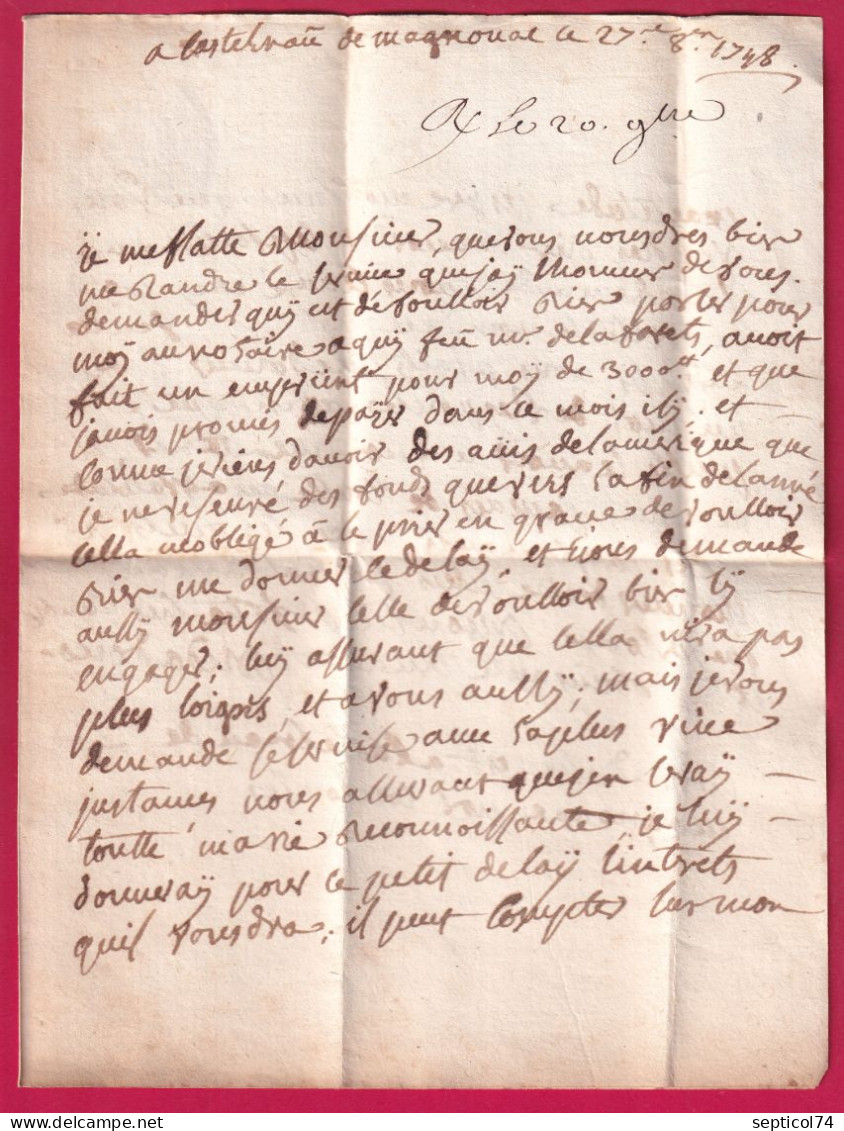 a Castelnau de magnouac le 27.e 8.re 1748
R le 20. 9bre
je me flatte Monsieur, que vous voudres bien
me randre le service que jaÿ lhonneur de vous
demander quÿ est de voulloir bien porter pour
moÿ au notaire a quÿ feu mr. de laforets, avoit
fait un emprunt pour moÿ de 3000lt et que
javois promis de payer dans ce mois icÿ. et
comme je viens davoir des avis de lamerique que
je ne reseuvré des fonds que vers la fin de lannée
cella moblige a le prier en grace de voulloir
bien me donner le delaÿ, et vous demande
aussÿ monsieur celle de voulloir bien lÿ
engager; luÿ assurant que cella nira pas
plus loin, et a vous aussÿ; mais je vous
demande ce servise avec la plus vive
justances vous assurant que jen seraÿ
toutte ma vie reconnoissante, je luÿ
donneraÿ pour ce petit delaÿ lintrets
quil voudra; il peut compter sur mon
septicol74